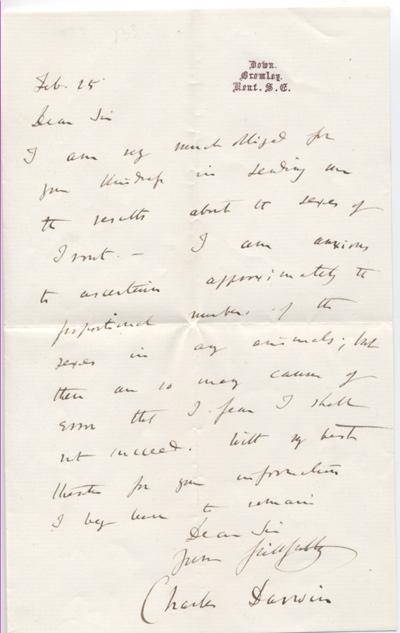 Down.
Bromley.
Kent. S.E.
Feb. 25
Dear Sir
I am very much obliged for
your kindness in sending me
the results about the sexes of
Trout. — I am anxious
to ascertain approximately the
proportional numbers of the
sexes in any animals; but
there are so many causes of
error that I fear I shall
not succeed. With my best
thanks for your information
I beg leave to remain
Dear Sir
yours faithfully
Charles Darwin